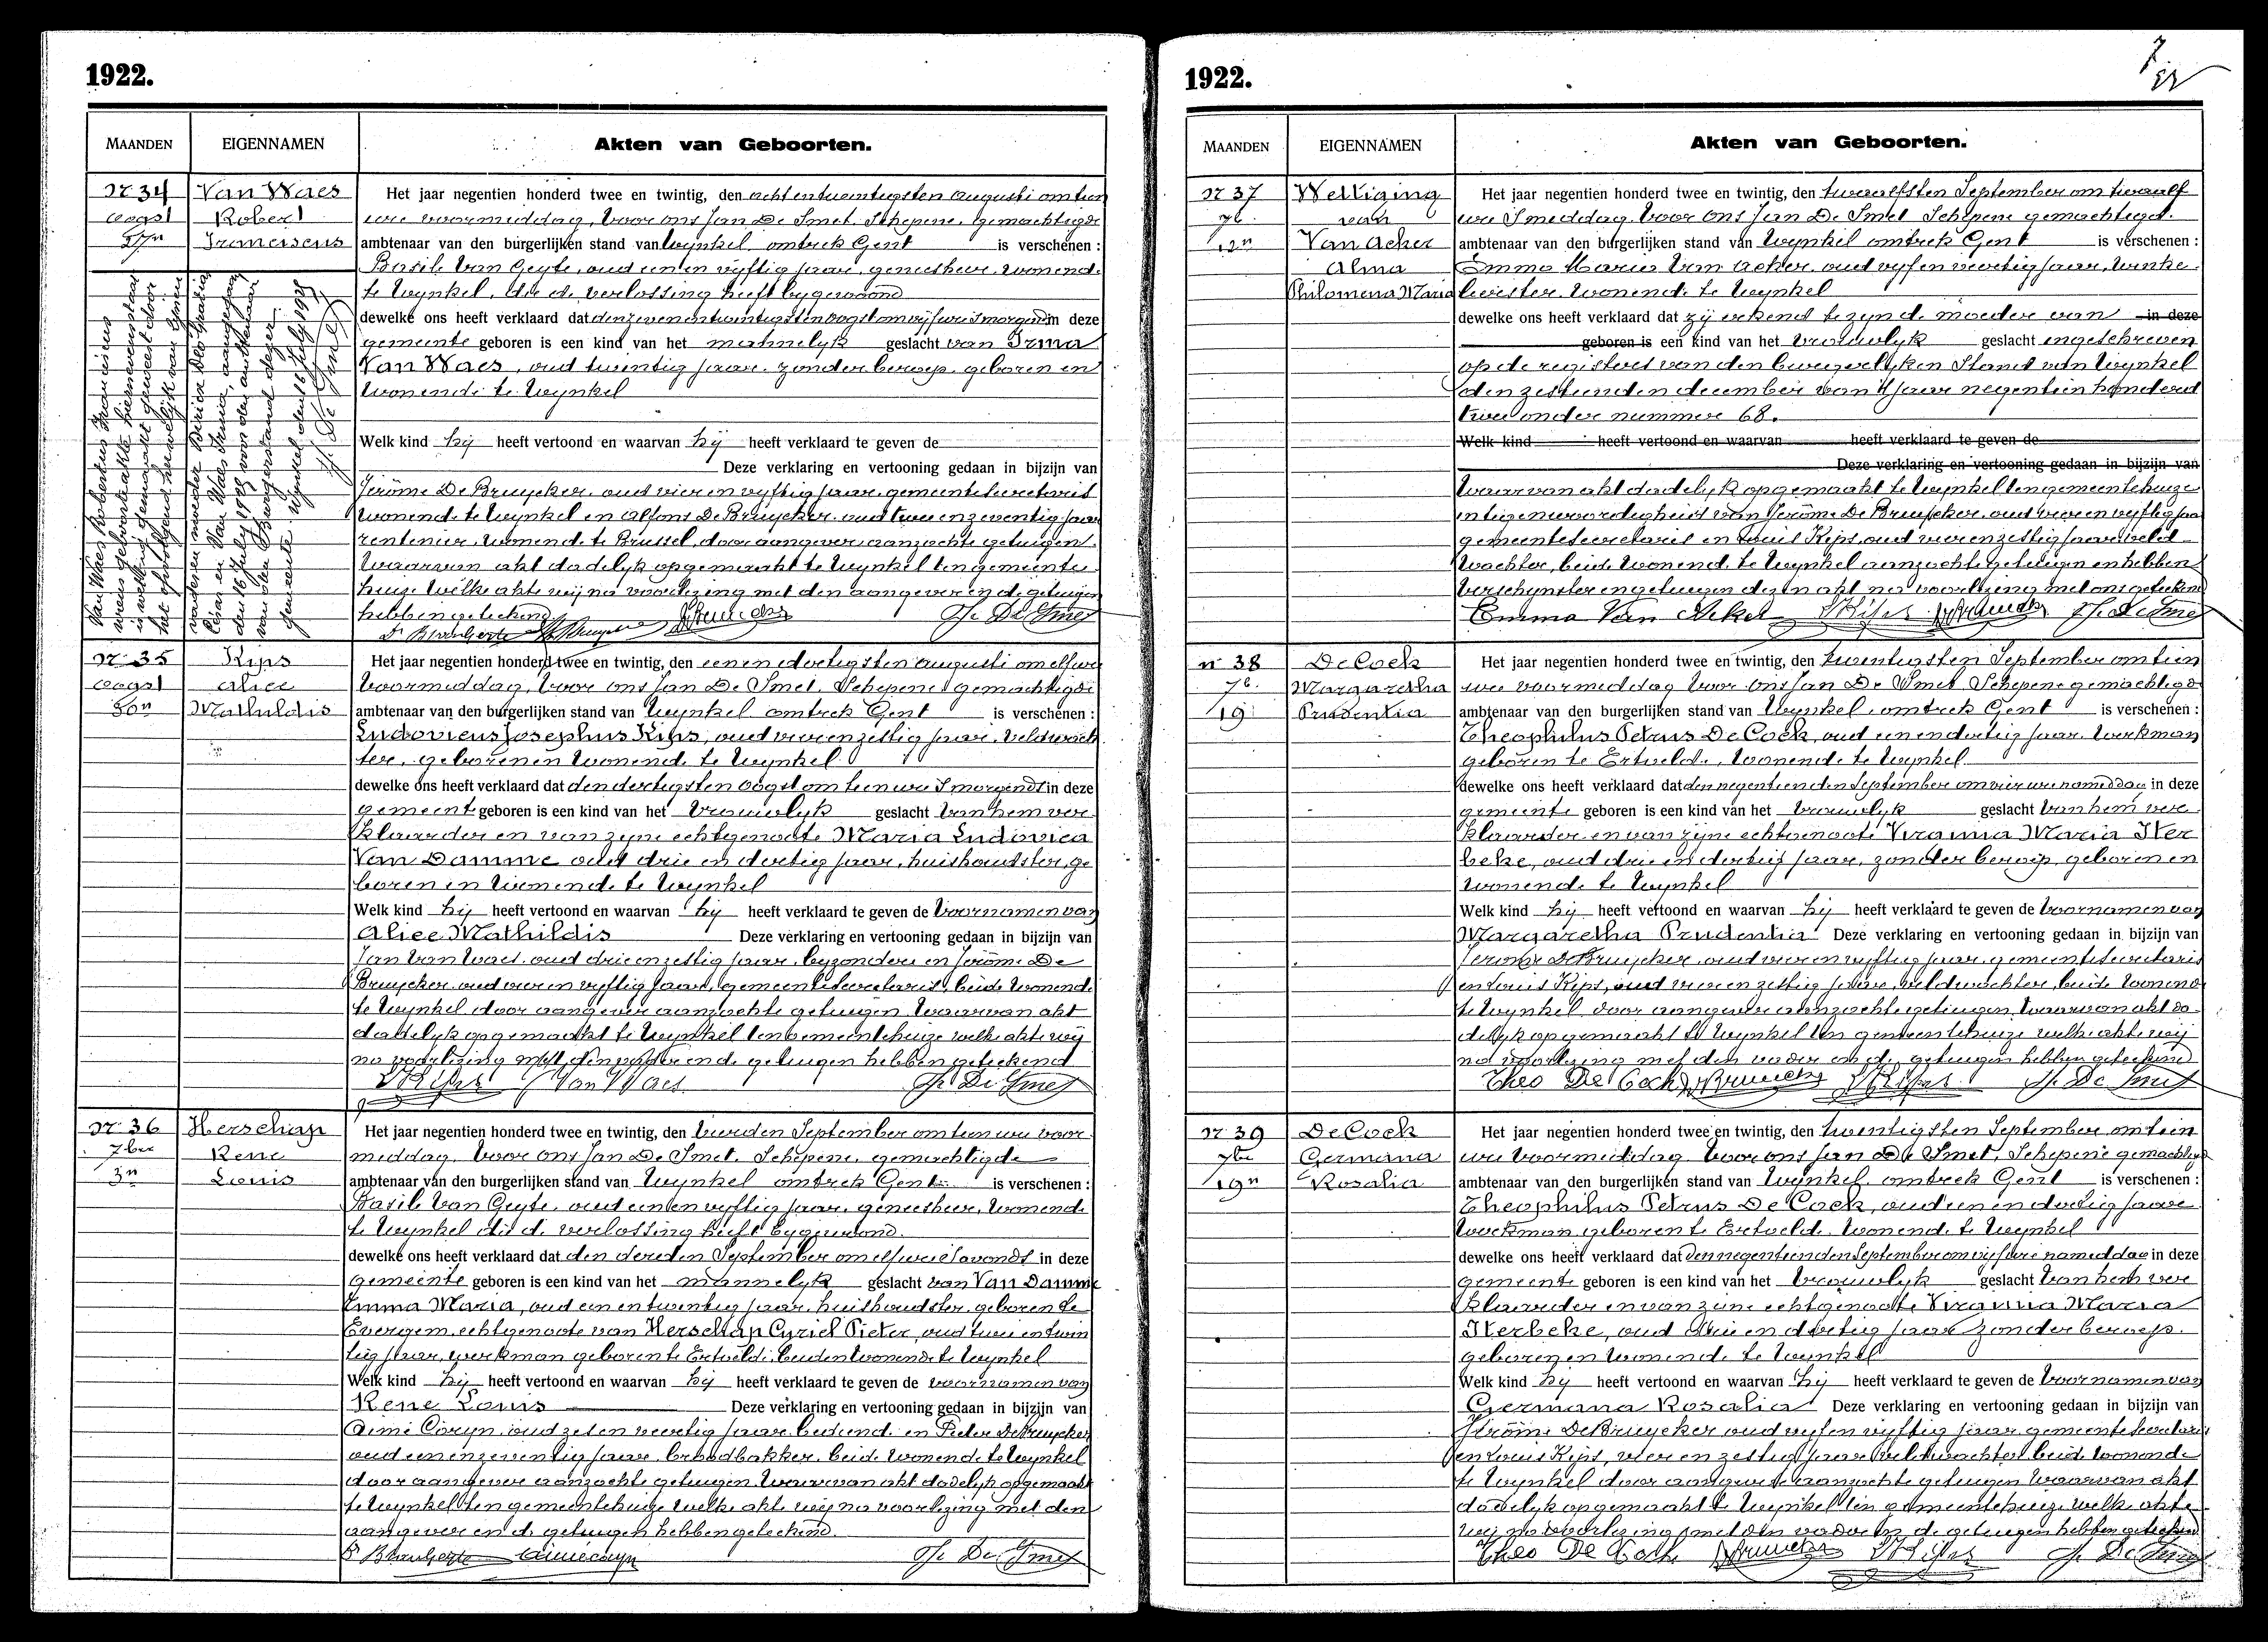 1922.
MAANDEN EIGENNAMEN Akten van Geboorten.
N 34 Van Waes
Oogst Robert
27n Franciscus
Het jaar negentien honderd twee en twintig, den acht en twintigsten Augusti om tien
ure voormiddag, voor ons Jan De Smet, Schepene, gemachtigde
ambtenaar van den burgerlijken stand van Wynkel omtrek Gent is verschenen :
Basile Van Geyte, oud een en vyftig jaar, geneesheer, wonende
te Wynkel, die de verlossing heeft bygewoond
dewelke ons heeft verklaard dat den zeven en twintigsten oogst om vyf ure 's morgends in deze
gemeente geboren is een kind van het mannelyk geslacht van Irma
Van Waes, oud twintig jaar, zonder beroep, geboren en
wonende te Wynkel
Welk kind hij heeft vertoond en waarvan hij heeft verklaard te geven de
Deze verklaring en vertooning gedaan in bijzijn van
Jerôme De Bruycker, oud vier en vyftig jaar, gemeentesecretaris
wonende te Wynkel en Alfons De Bruycker, oud twee en zeventig jaar
rentenier, wonende te Brussel, door aangever aanzochte getuigen.
Waarvan akt dadelyk opgemaakt te Wynkel ten gemeente
huize. Welke akte wij na voorlezing met den aangever en de getuigen
hebben geteekend
J. De Smet
Van Waes Robertus Franciscus
wiens geboorteakte hiernevenstaat
is wettig gemaakt geweest door
het opvolgend huwelijk van zijnen
Cesar en Van Waes Irma, aangegaan
den 16 July 1928 voor den ambtenaar
van den Burgerstand dezer
gemeente. Wynkel den 16 July 1928
J. De Smet
N 35 Kips
Oogst Alice
30n Mathildis
Het jaar negentien honderd twee en twintig, den een en dertigsten Augusti om elf ure
voormiddag, voor ons Jan De Smet, Schepene, gemachtigde
ambtenaar van den burgerlijken stand van Wynkel omtrek Gent is verschenen :
Ludovicus Josephus Kips, oud vier en zestig jaar, veldwach
ter, geboren en wonende te Wynkel
dewelke ons heeft verklaard dat den dertigsten oogst om tien ure 's morgends in deze
gemeente geboren is een kind van het vrouwelyk geslacht van hem ver
klaarder en van zyne echtgenoote Maria Ludovica
Van Damme oud drie en dertig jaar, huishoudster, ge
boren en wonende te Wynkel
Welk kind hij heeft vertoond en waarvan hij heeft verklaard te geven de voornamen van
Alice Mathildis Deze verklaring en vertooning gedaan in bijzijn van
Jan Van Waes, oud drie en zestig jaar, byzondere en Jerôme De
Bruycker, oud vier en vyftig jaar, gemeentesecretaris, beide wonende
te Wynkel door aangever aanzochte getuigen. Waarvan akt
dadelyk opgemaakt te Wynkel ten gemeentehuize welke akte wij
na voorlezing met den vader en de getuigen hebben geteekend
L Kips J Van Waes J. De Smet
N 36 Herschap
7ber Rene
3n Louis
Het jaar negentien honderd twee en twintig, den vierden September om tien ure voor
middag, voor ons Jan De Smet, Schepene, gemachtigde
ambtenaar van den burgerlijken stand van Wynkel omtrek Gent is verschenen :
Basile Van Geyte, oud een en vyftig jaar, geneesheer, wonende
te Wynkel die de verlossing heeft bygewoond.
dewelke ons heeft verklaard dat den derden September om elf ure 's avonds in deze
gemeente geboren is een kind van het mannelyk geslacht van Van Damme
Emma Maria, oud een en twintig jaar, huishoudster, geboren te
Evergem, echtgenoote van Herschap Cyriel Pieter, oud twee en twin
tig jaar, werkman geboren te Ertvelde, beiden wonende te Wynkel
Welk kind hij heeft vertoond en waarvan hij heeft verklaard te geven de voornamen van
Rene Louis Deze verklaring en vertooning gedaan in bijzijn van
Aimé Coryn, oud zes en veertig jaar, bediende en Pieter De Bruycker
oud een en zeventig jaar, broodbakker, beide wonende te Wynkel
door aangever aanzochte getuigen. Waarvan akt dadelyk opgemaakt
te Wynkel ten gemeentehuize. Welke akte wij na voorlezing met den
aangever en de getuigen hebben geteekend.
Aimé Coryn J. De Smet
1922.
7
MAANDEN EIGENNAMEN Akten van Geboorten.
N 37 Wettiging
7b. van
12n Van Acker
Alma
Philomena Maria
Het jaar negentien honderd twee en twintig, den twaalfsten September om twaalf
ure 's middag voor ons Jan De Smet Schepene gemachtigd.
ambtenaar van den burgerlijken stand van Wynkel omtrek Gent is verschenen :
Emma Maria Van Acker, oud vyf en veertig jaar, winke
lierster, wonende te Wynkel
dewelke ons heeft verklaard dat zij erkend te zyn de moeder van in deze
geboren is een kind van het vrouwelyk geslacht ingeschreven
op de registers van den burgerlyken Stand van Wynkel
den zestienden december van 't jaar negentien honderd
twee onder nummer 68.
Welk kind heeft vertoond en waarvan heeft verklaard te geven de
Deze verklaring en vertooning gedaan in bijzijn van
Waarvan akt dadelyk opgemaakt te Wynkel ten gemeentehuize
in tegenwoordigheid van Jerôme De Bruycker, oud vier en vyftig jaar
gemeentesecretaris en Louis Kips, oud vier en zestig jaar, veld
wachter, beide wonende te Wynkel aanzochte getuigen en hebben
verschynster en getuigen dezen akt na voorlezing met ons geteekend
Emma Van Acker L Kips J. De Smet
n 38 De Cock
7b. Margaretha
19 Prudentia
Het jaar negentien honderd twee en twintig, den twintigsten September om tien
ure voormiddag voor ons Jan De Smet Schepene gemachtigd
ambtenaar van den burgerlijken stand van Wynkel, omtrek Gent is verschenen :
Theophilus Petrus De Cock, oud een en dertig jaar, werkman
geboren te Ertvelde, wonende te Wynkel
dewelke ons heeft verklaard dat den negentienden September om vier ure namiddag in deze
gemeente geboren is een kind van het vrouwelyk geslacht van hem ver
klaarder en van zyne echtgenoote Virginia Maria Ster
beke, oud drie en dertig jaar, zonder beroep, geboren en
wonende te Wynkel
Welk kind hij heeft vertoond en waarvan hij heeft verklaard te geven de voornamen van
Margaretha Prudentia Deze verklaring en vertooning gedaan in bijzijn van
Jerome De Bruycker, oud vier en vyftig jaar, gemeentesecretaris
en Louis Kips, oud vier en zestig jaar, veldwachter, beide wonende
te Wynkel door aangever aanzochte getuigen. Waarvan akt da
delyk opgemaakt te Wynkel ten gemeentehuize welke akte wij
na voorlezing met den vader en de getuigen hebben geteekend
Theo De Cock L Kips J. De Smet
N 39 De Cock
7be Germana
19n Rosalia
Het jaar negentien honderd twee en twintig, den twintigsten September om tien
ure voormiddag voor ons Jan De Smet, Schepene gemachtigd
ambtenaar van den burgerlijken stand van Wynkel, omtrek Gent is verschenen :
Theophilus Petrus De Cock, oud een en dertig jaar
werkman geboren te Ertvelde wonende te Wynkel
dewelke ons heeft verklaard dat den negentienden September om vyf ure namiddag in deze
gemeente geboren is een kind van het vrouwelyk geslacht van hem ver
klaarder en van zyne echtgenoote Virginia Maria
Sterbeke, oud drie en dertig jaar zonder beroep.
geboren en wonende te Wynkel
Welk kind hij heeft vertoond en waarvan hij heeft verklaard te geven de voornamen van
Germana Rosalia Deze verklaring en vertooning gedaan in bijzijn van
Jerôme De Bruycker oud vyf en vyftig jaar gemeentesecretaris
en Louis Kips, vier en zestig jaar veldwachter beide wonende
te Wynkel door aangever aanzochte getuigen Waarvan akt
dadelyk opgemaakt te Wynkel ten gemeentehuize welke akte
wij na voorlezing met den vader en de getuigen hebben geteekend
Theo De Cock L Kips J. De Smet